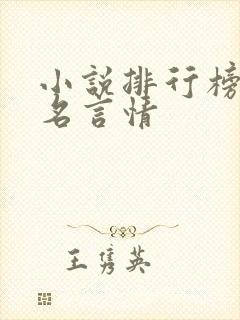 小說排行榜
名言情
王隽英